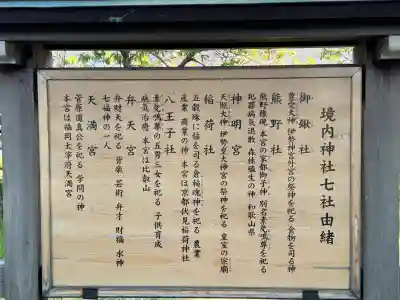 境内神社七社由緒
御鍬社
豊受大神 伊勢神宮外宮の祭神を祀る 食物を司る神
熊野社
熊野権現 本宮の家都御子神 別名素戔嗚尊を祀る
犯罪病気退散 森林殖生の神 和歌山県
神明宮
天照大神 伊勢皇大神宮の祭神を祀る 皇室の宗廟
稲荷社
五穀殊に稲を司る倉稲魂神を祀る 農業
産業 商業の神 本宮は京都伏見稲荷神社
八王子社
素戔嗚尊の五男三女を祀る 子供育成
病気治癒 本宮は比叡山
弁天宮
弁財天を祀る 音楽 芸術 弁才 財福 水神
七福神の一人
天満宮
菅原道真公を祀る 学問の神
本宮は福岡太宰府天満宮